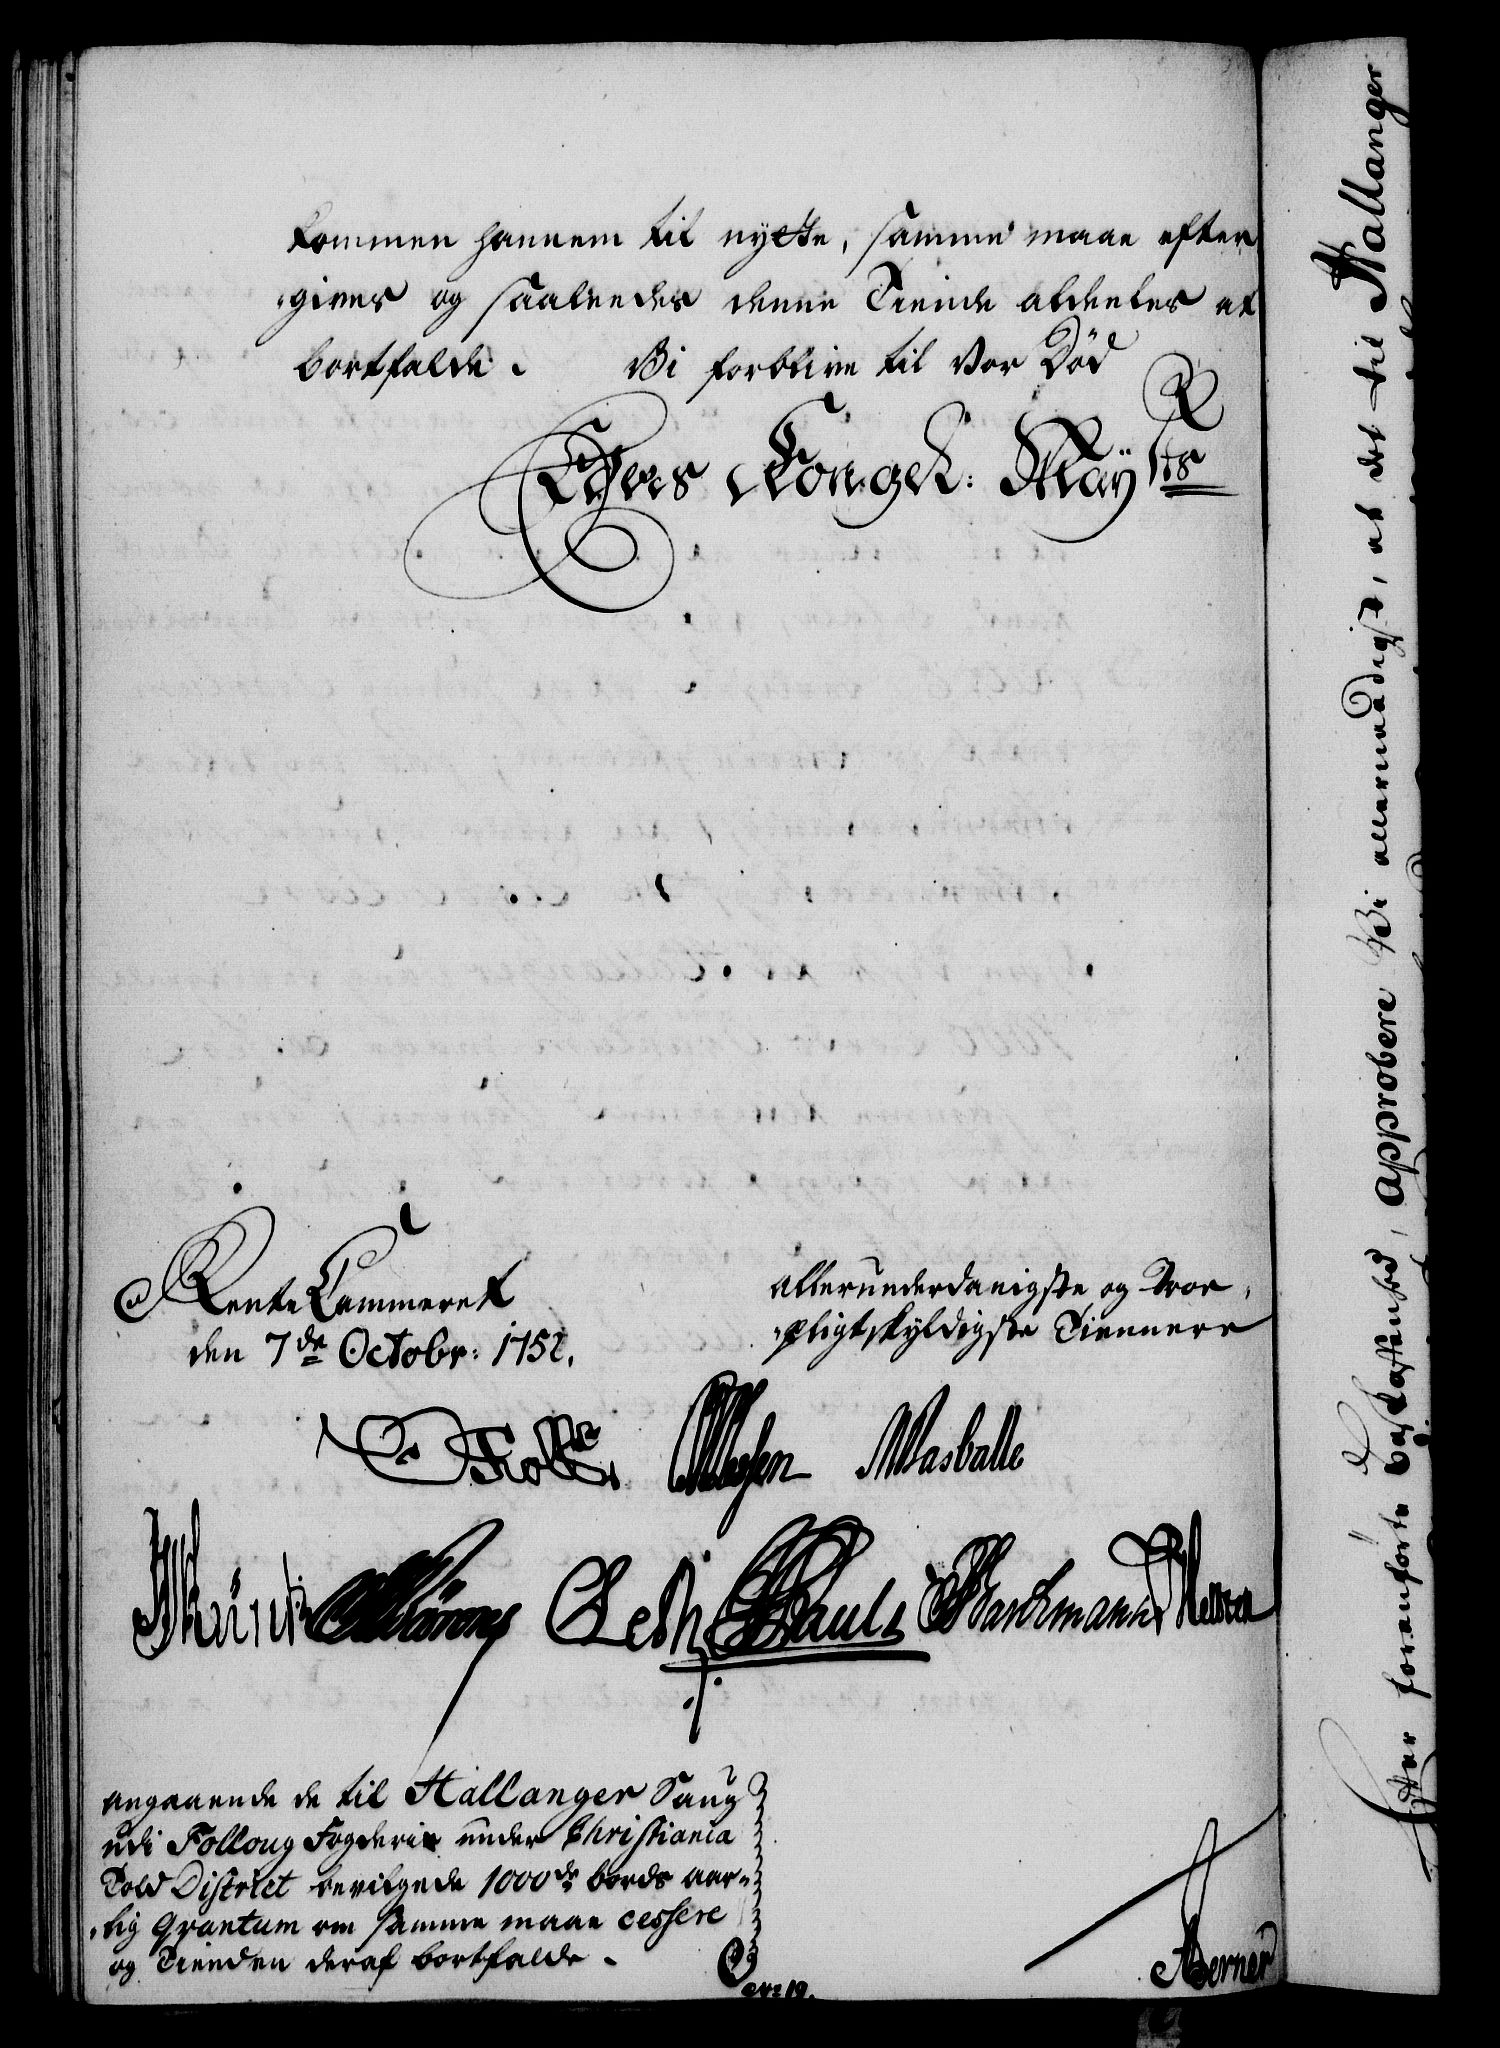 kommen hannem til nytte, samme maae efter
-gives og saaleedes denne Tiende aldeeles at
bortfalde. Vi forblive til Vor Død
Eders Kongel: Mayts
Rente Cammeret
den 7de Octobr: 1752.
allerunderdanigste og Troe-
-pligtskyldigste Tiennere
Holst
Wasballe
Leth Pauls
angaaende de til Hallanger Saug
udi Folloug Fogderie under Christiania
Told District bevilgede 1000de bords aar-
-lig Qvantum om samme maae cessere
og Tienden deraf bortfalde.
No: 19.
Berner
Efter foranførte beskaffenhed, approbere Vi allernaadigst, at det til Hallanger